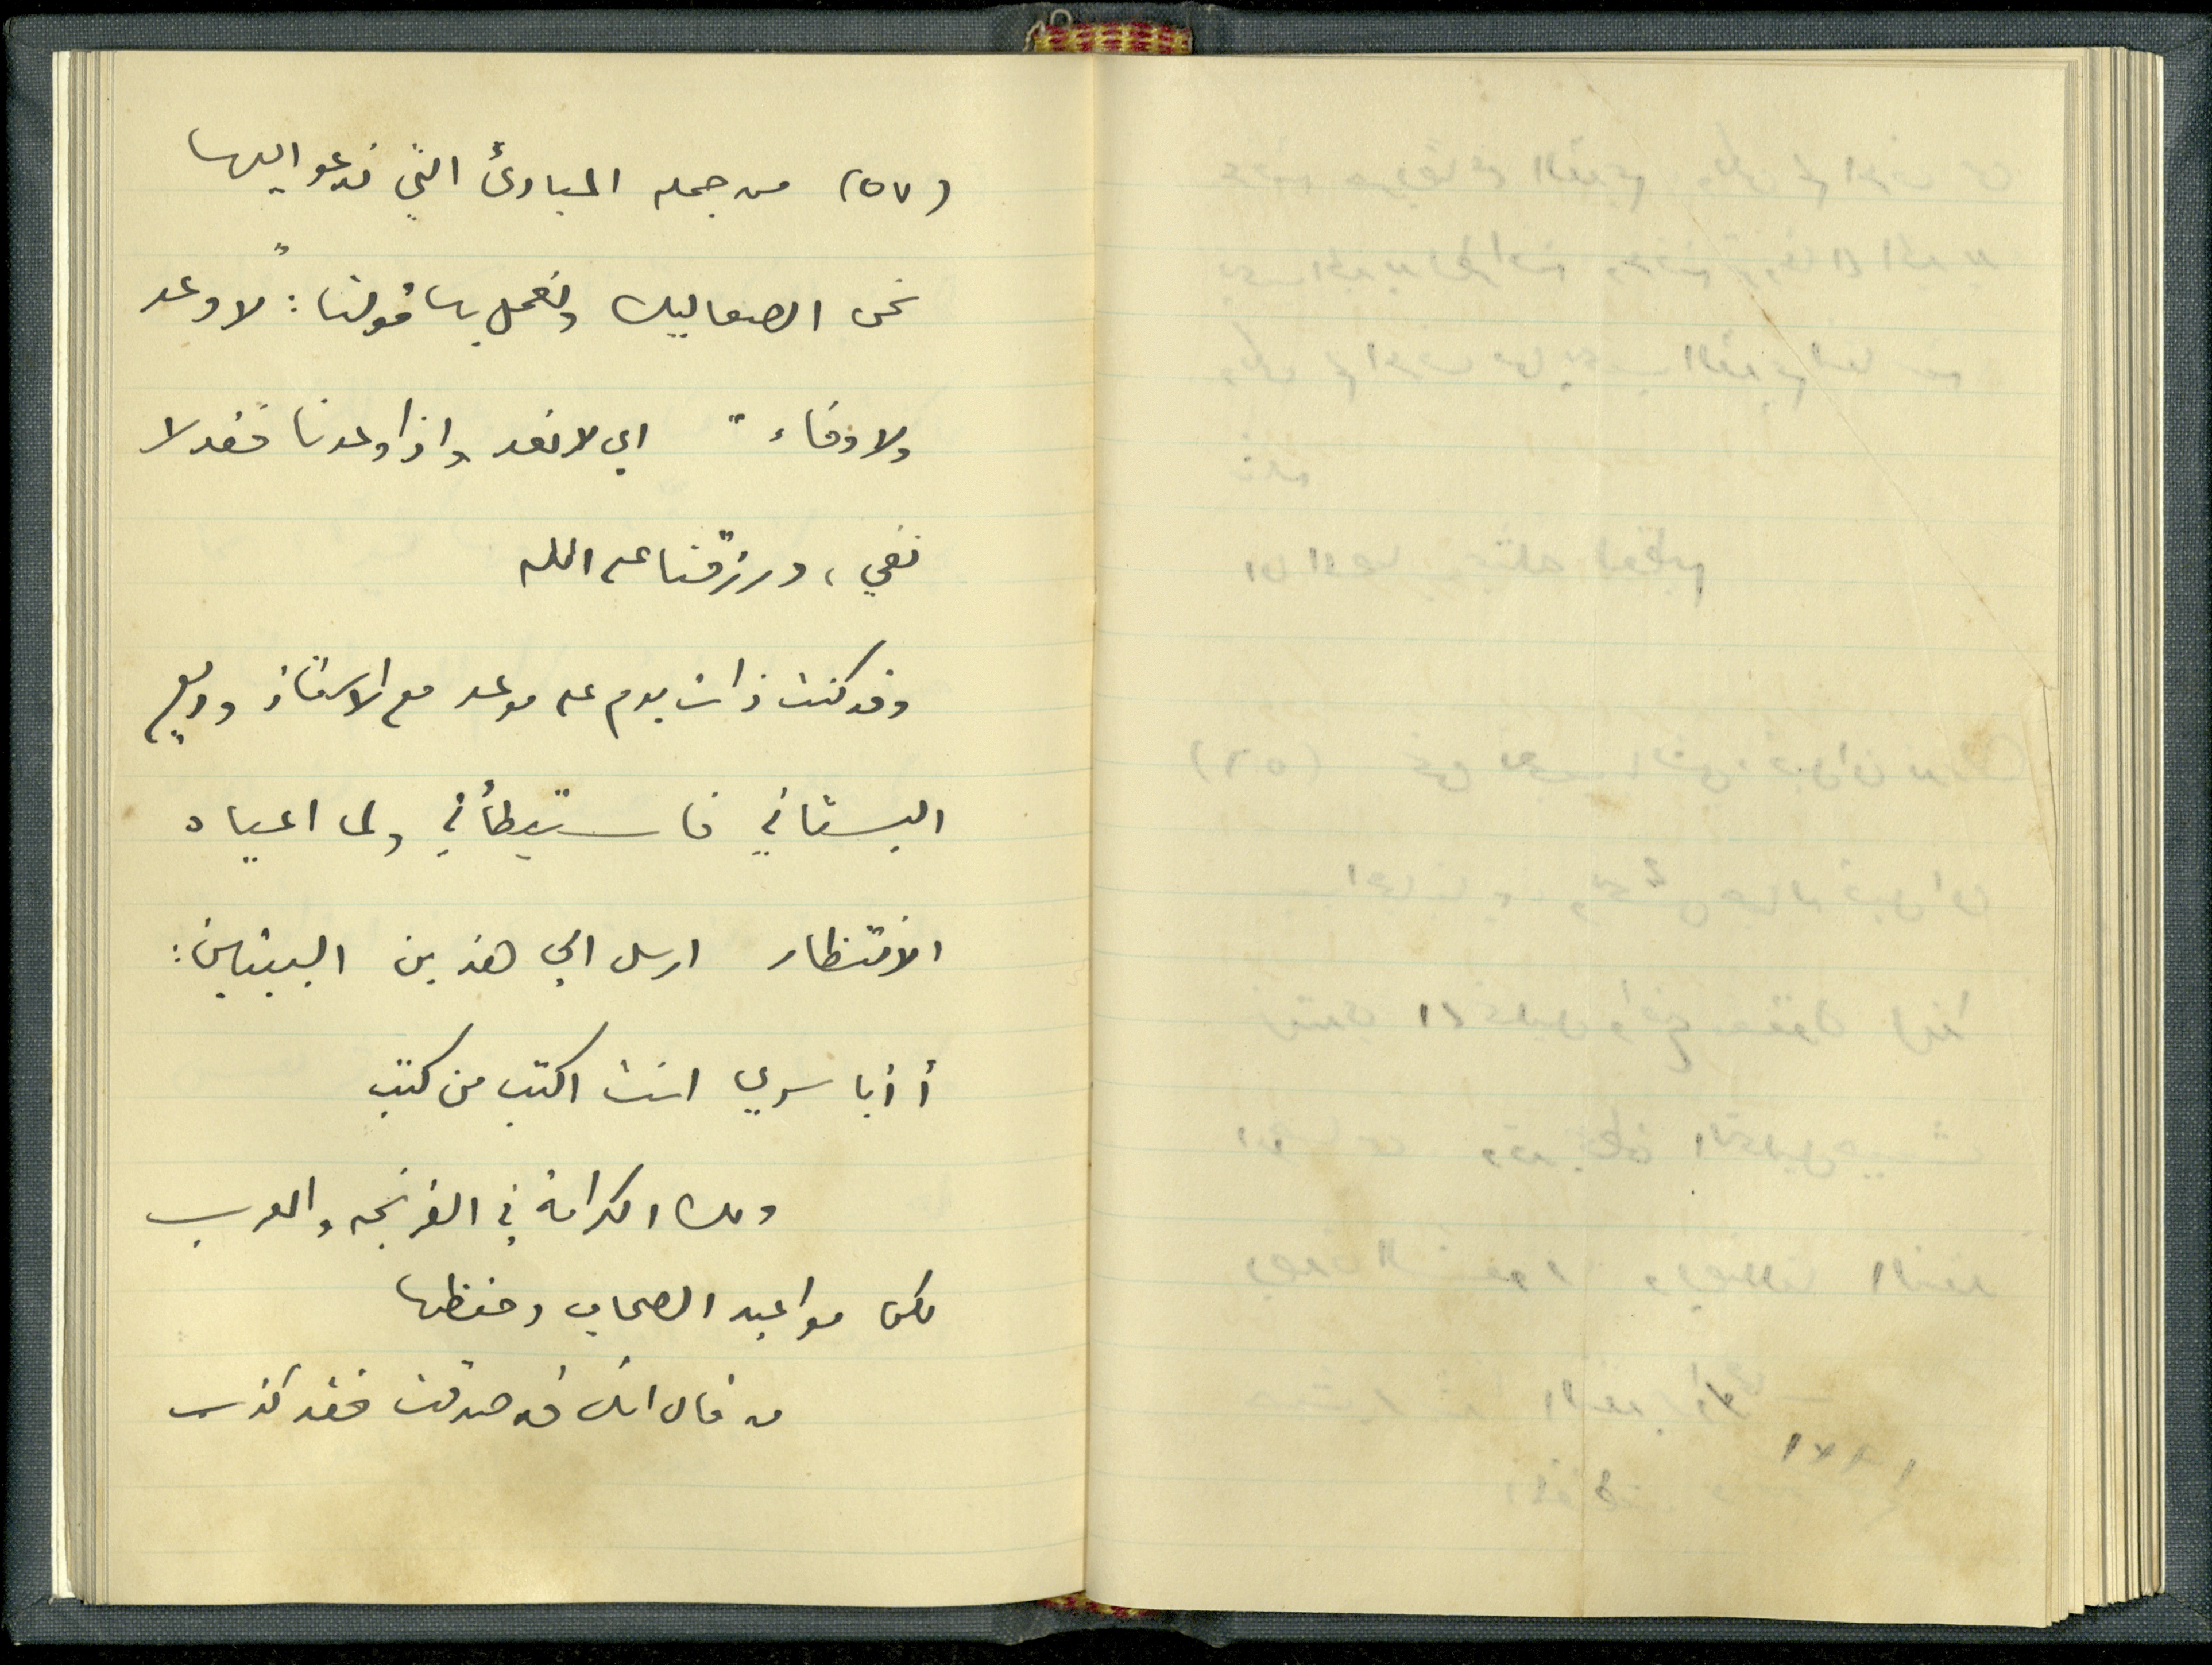 (٥٧) من جملة المبادئ التي ندعو اليها
نحن الصعاليك ونعمل بها قولنا: "لا وعد
ولا وفاء" اي لا نعد واذا وعدنا فقد لا
نفي، ورزقنا على الله
وقد كنت ذات يوم على موعد مع الاستاذ وديع
البستاني فاستبطأني ولما اعياه
الانتظار ارسل الي هذين البيتين:
أ أبا سري انت اكتب من كتب
ولك الكرامة في الفرنجة والعرب
لكن مواعيد الصحاب وحفظها
من قال انك قد صدقت فقد كذب